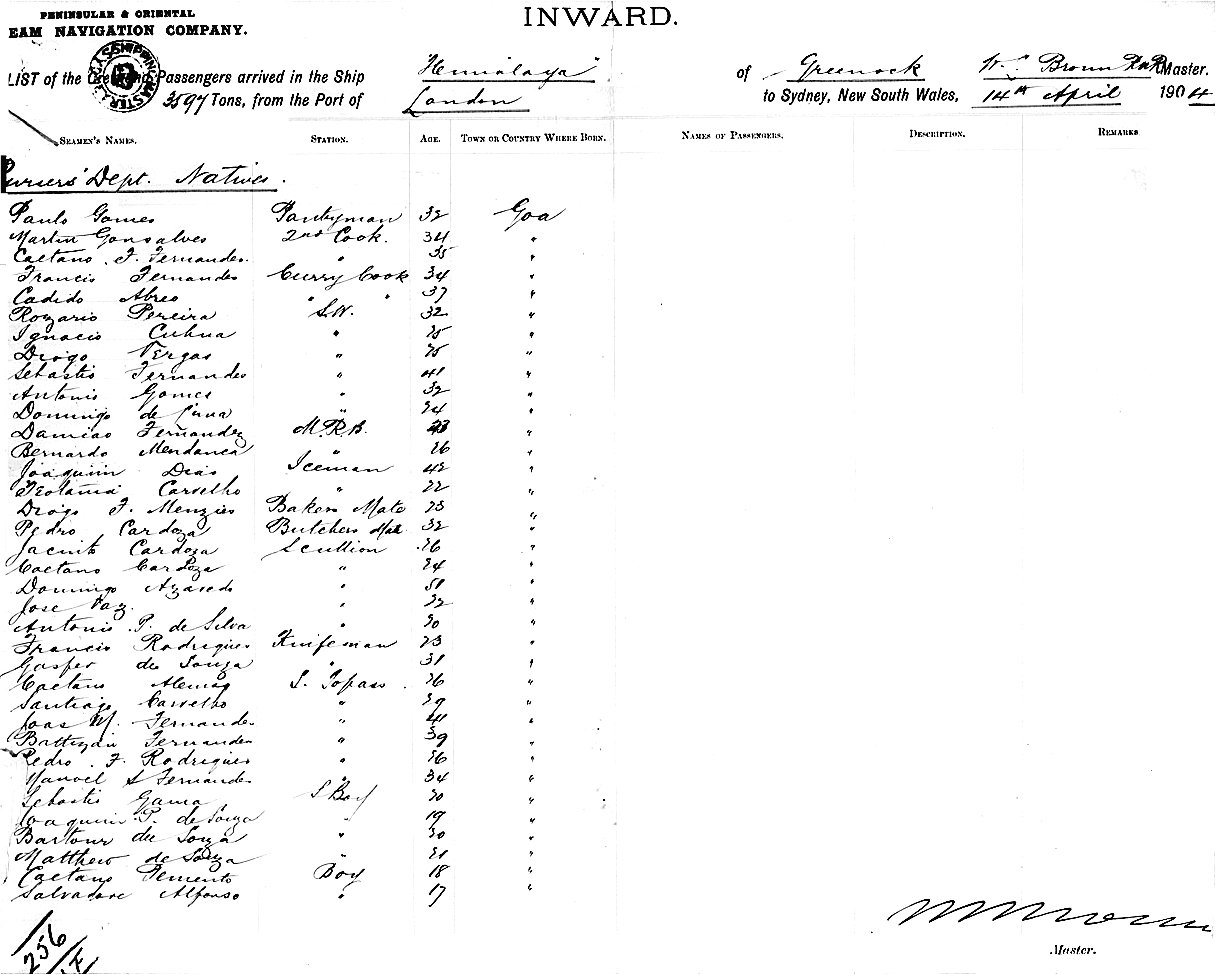 PENINSULAR & ORIENTAL
EAM NAVIGATION COMPANY.
INWARD.
LIST of the Crew and Passengers arrived in the Ship "Himalaya" of Greenock W. Brown RNR Master.
3597 Tons, from the Port of London to Sydney, New South Wales, 14th April 1904
SEAMEN'S NAMES. STATION. AGE. TOWN OR COUNTRY WHERE BORN. NAMES OF PASSENGERS. DESCRIPTION. REMARKS
Pursers' Dept. Natives.
Paulo Gomes Pantryman 32 Goa
Martin Gonsalves 2nd Cook. 34 "
Caetano . F. Fernandes. " 35 "
Francis Fernandes Curry Cook 34 "
Cadido Abreo " " 37 "
Rozario Pereira S.W. 32 "
Ignacio Cuhna " 25 "
Diogo Vergas " 25 "
Sebastio Fernandes " 41 "
Antonio Gomes " 32 "
Domingo de Cuna " 24 "
Damiao Fernandez M.R.B. "
Bernardo Mendanca " 26 "
Joaquim Dias Iceman 42 "
Carvelho " 22 "
Diogo F. Menzies Bakers Mate 23 "
Pedro Cardoza Butchers Mate 32 "
Jacinto Cardoza Scullion 26 "
Caetano Cardoza " 24 "
Domingo Azavedo " 51 "
Jose Vaz. " 22 "
Antonio . P. de Silva " 20 "
Francis Rodrigues Knifeman 23 "
Gasper de Souza " 31 "
Caetano Alemao S. Topass . 26 "
Santiago Carvelho " 29 "
Joao M. Fernandes " 41 "
Fernandes " 39 "
Pedro . F. Rodrigues " 26 "
Manoel S Fernandes " 34 "
Sebastio Gama S Boy 20 "
Joaquim P. de Souza " 19 "
de Souza " 20 "
Matthew de Souza " 21 "
Caetano Pemento Boy 18 "
Salvadore Alfonso " 17 "
256
Master.